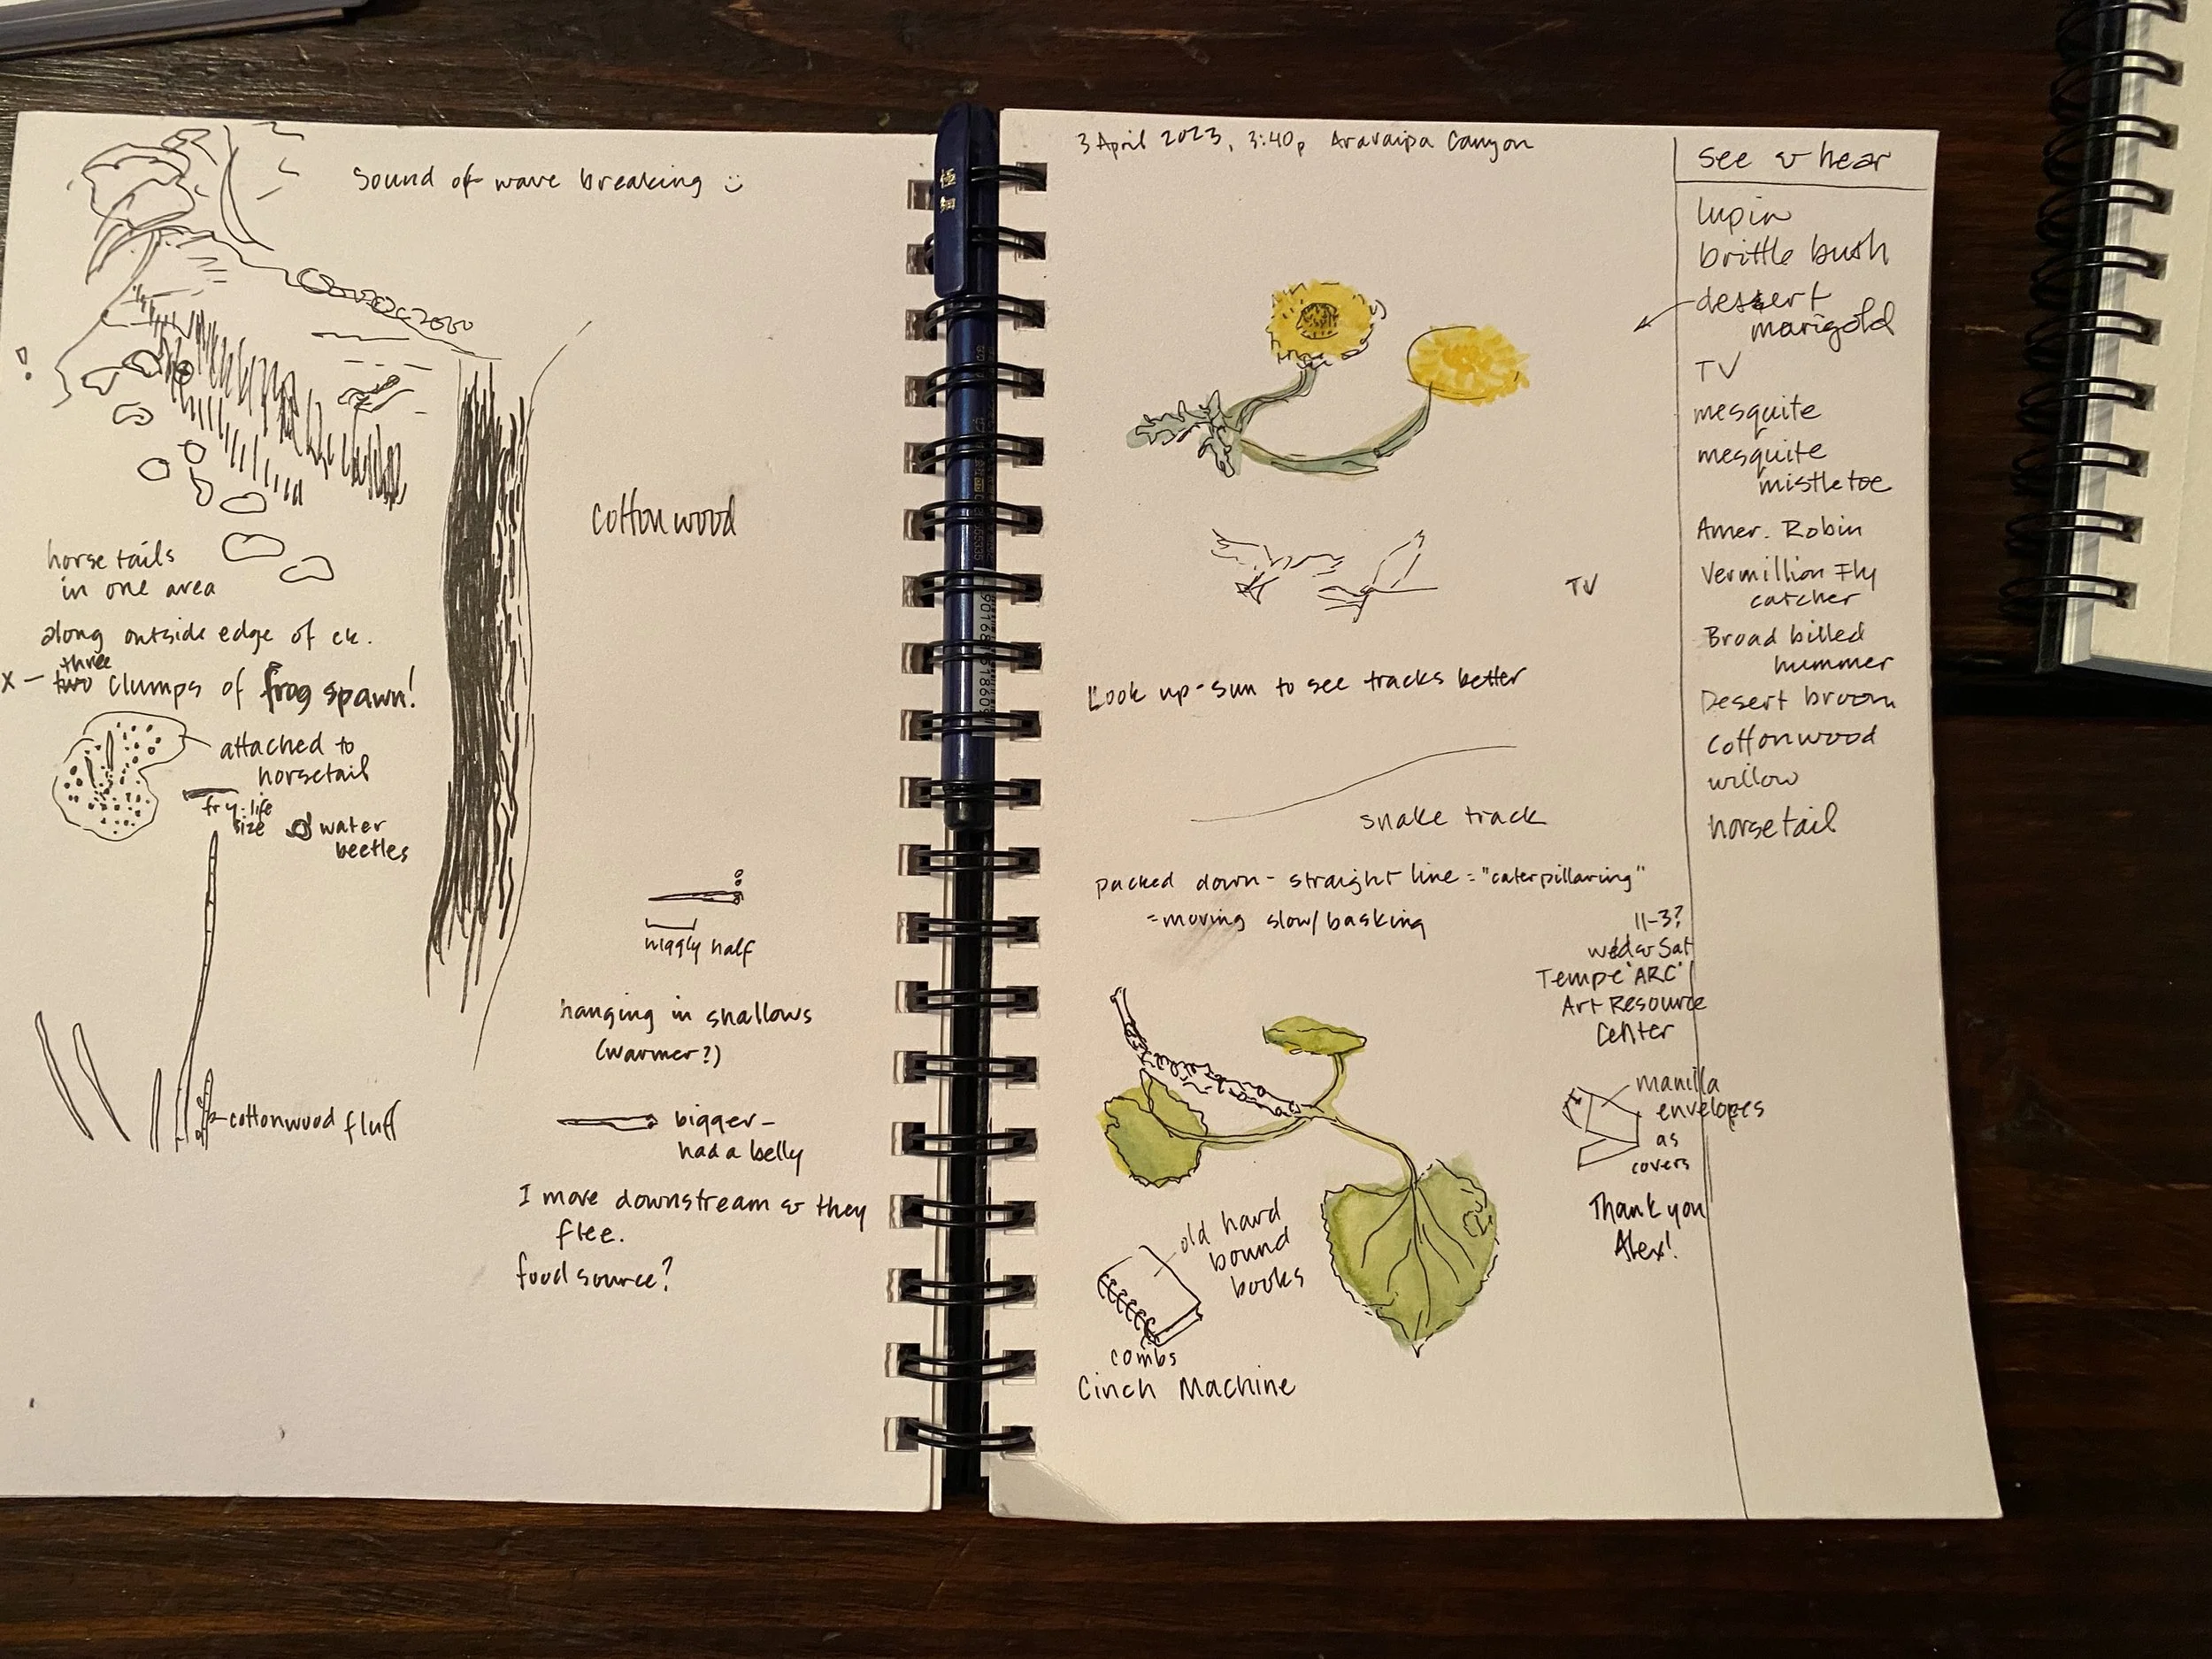 sound of wave breaking
cottonwood
horsetails
in one area
along outside edge of ck.
three
x – two clumps of frog spawn!
attached to
horsetail
fry-life
size
water
beetles
cottonwood fluff
wiggly half
hanging in shallows
(warmer?)
bigger –
had a belly
I move downstream & they
flee.
food source?
極
細
3 April 2023, 3:40p Aravaipa Canyon
TV
Look up-sun to see tracks better
snake track
packed down - straight line = "caterpillaring"
= moving slow/basking
11-3?
wed & Sat
Tempe "ARC"
Art Resource
Center
manilla
envelopes
as
covers
Thank you
Alex!
old hard
bound
books
combs
Cinch Machine
see & hear
lupin
brittle bush
dessert
marigold
TV
mesquite
mesquite
mistletoe
Amer. Robin
Vermillion Fly
catcher
Broad billed
hummer
Desert broom
Cottonwood
willow
horsetail